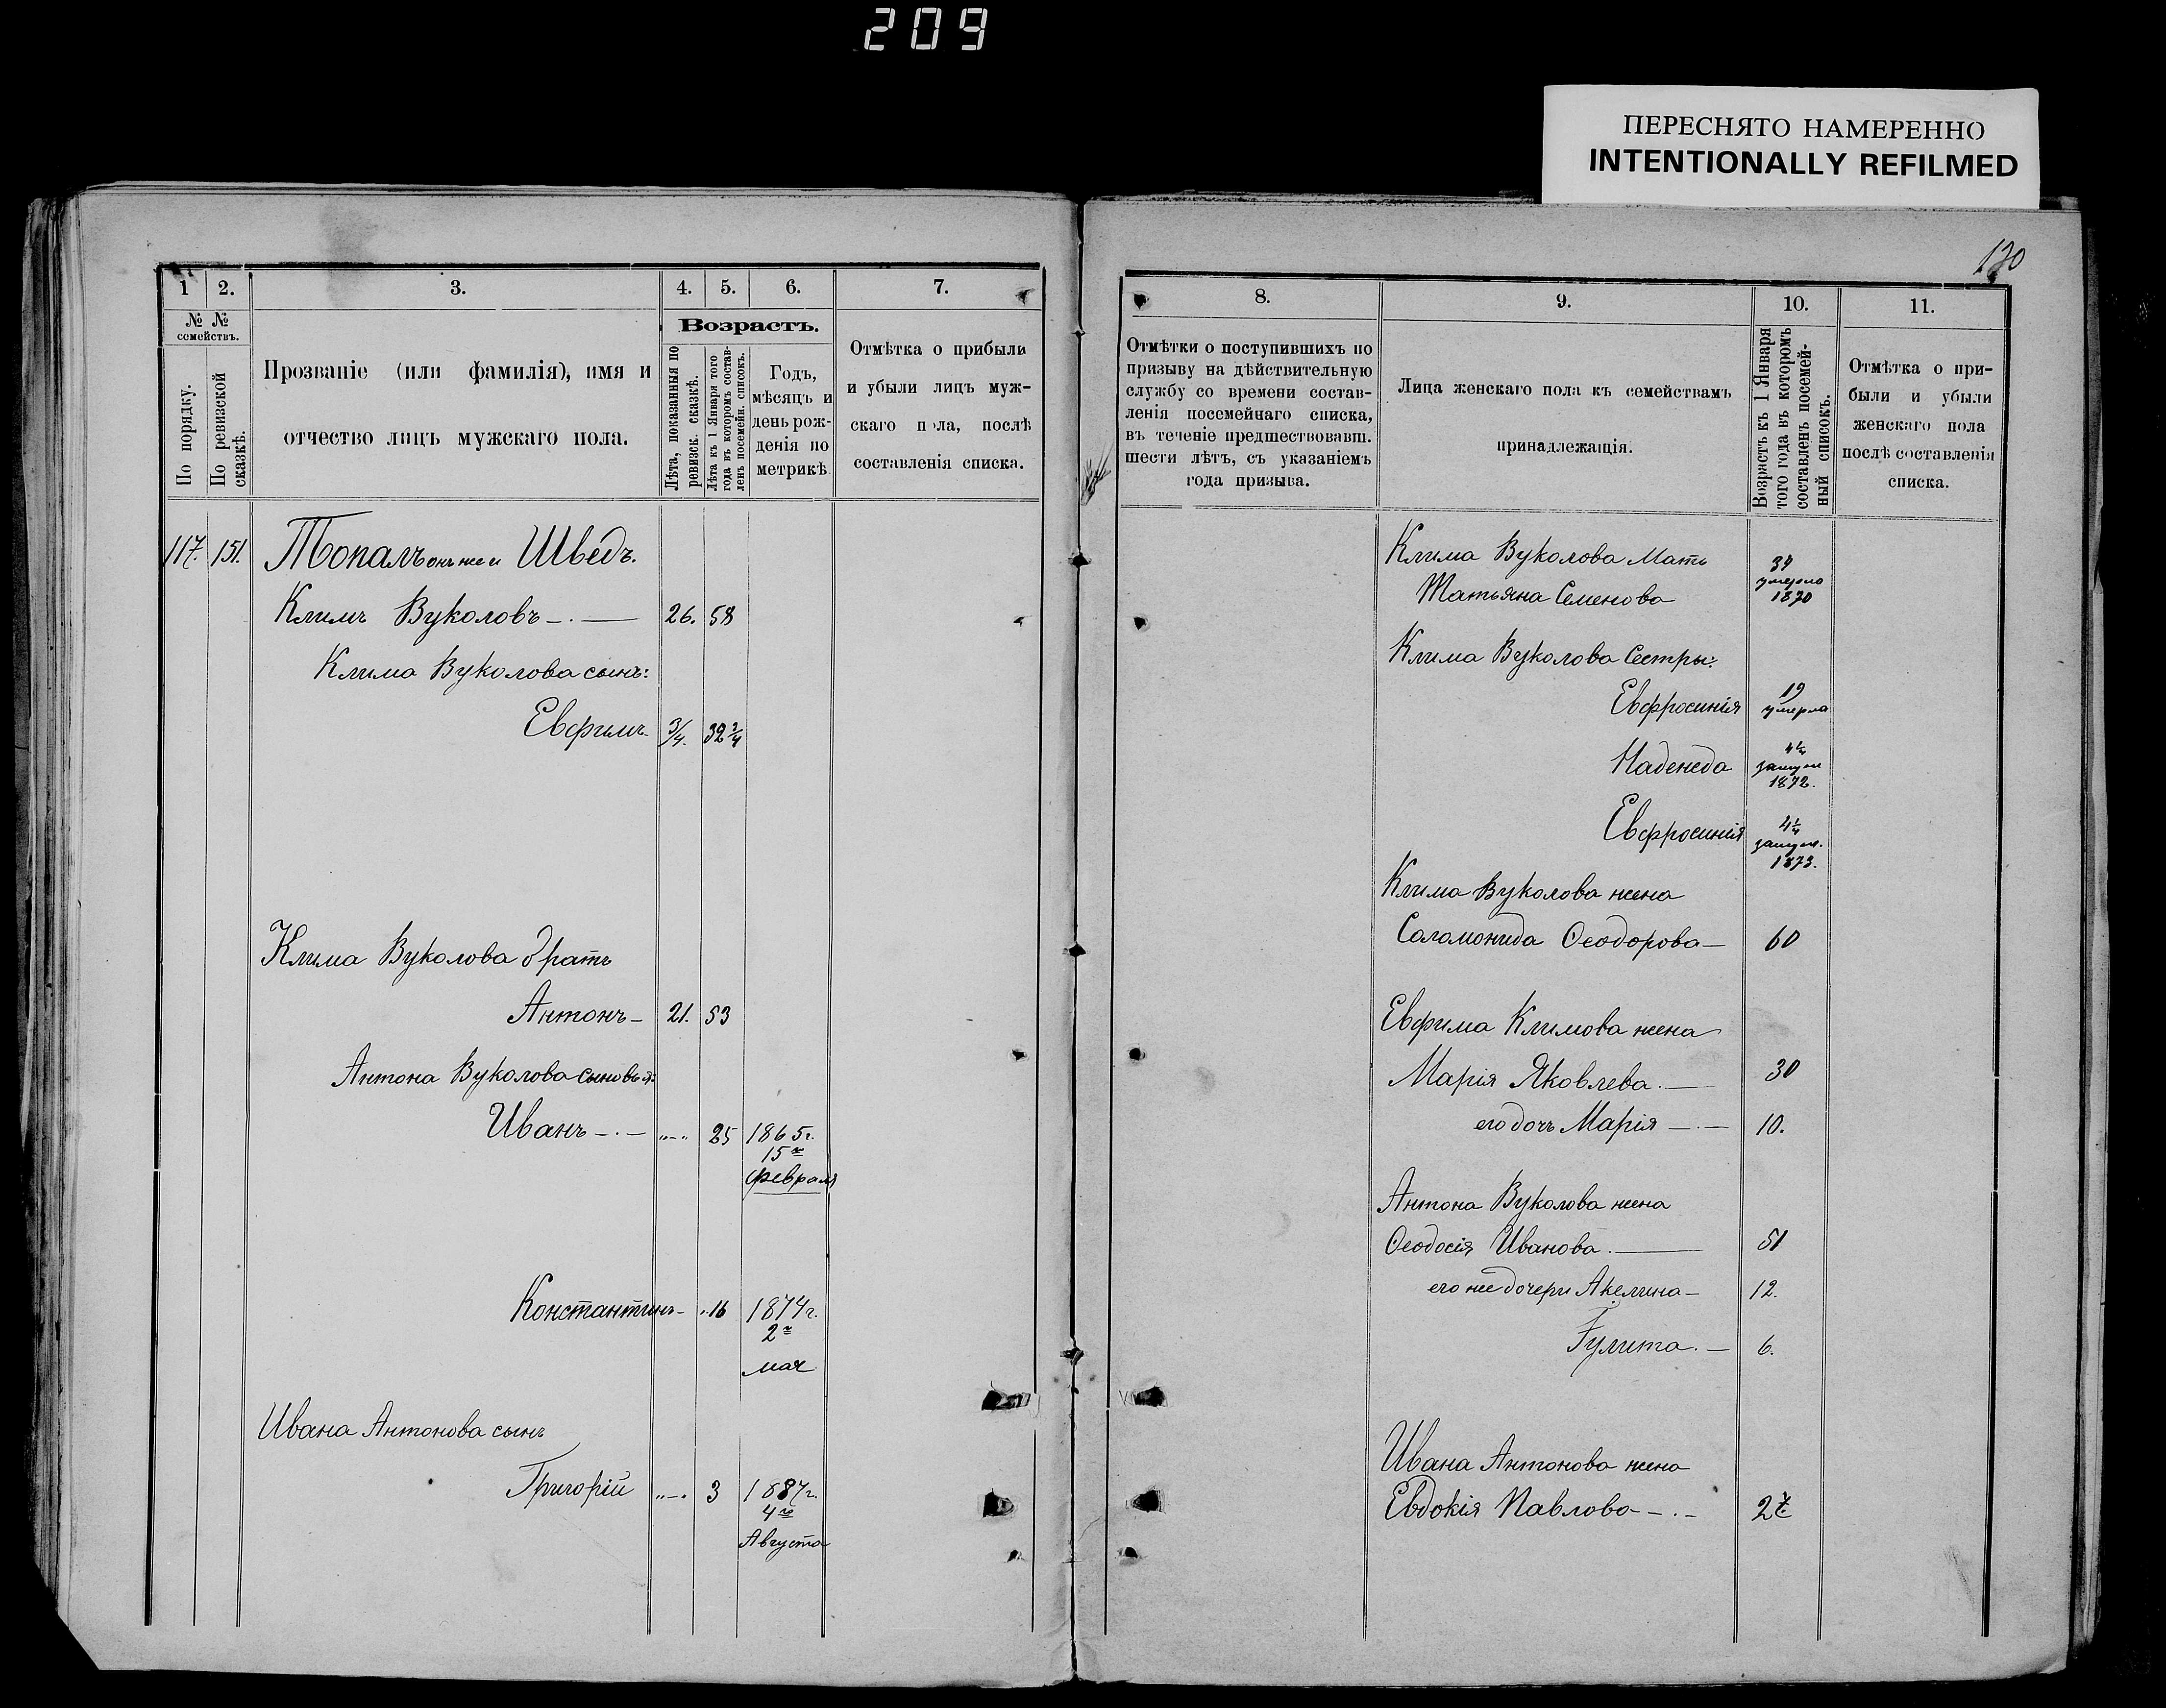 209
ПЕРЕСНЯТО НАМЕРЕННО
INTENTIONALLY REFILMED
130
1 2. 3. 4. 5. 6. 7.
№ №
семействъ.
По порядку.
По ревизской сказкѣ.
Прозваніе (или фамилія), имя и
отчество лицъ мужскаго пола.
Возрастъ.
Лѣта, показанныя по ревизск. сказкѣ.
Лѣта къ 1 Января того года въ которомъ составленъ посемейн. списокъ.
Годъ,
мѣсяцъ и
день рож-
денія по
метрикѣ
Отмѣтка о прибыли
и убыли лицъ муж-
скаго пола, послѣ
составленія списка.
117. 151. Топалъ онъ же и Шведъ.
Климъ Вуколовъ 26. 58
Клима Вуколова сынъ:
Евфимъ 3/4. 32 3/4
Клима Вуколова братъ
Антонъ 21. 53
Антона Вуколова сыновья:
Иванъ 25 1865 г.
15го
февраля
Константинъ 16 1874 г.
2го
мая
Ивана Антонова сынъ
Григорій 3 1887 г.
4го
Августа
8. 9. 10. 11.
Отмѣтки о поступившихъ по
призыву на дѣйствительную
службу со времени состав-
ленія посемейнаго списка,
въ теченіе предшествовавш.
шести лѣтъ, съ указаніемъ
года призыва.
Лица женскаго пола къ семействамъ
принадлежащія.
Возрастъ къ 1 Января
того года въ которомъ
составленъ посемей-
ный списокъ.
Отмѣтка о при-
были и убыли
женскаго пола
послѣ составленія
списка.
Клима Вуколова Мать
Татьяна Семенова
умерла
1870
Клима Вуколова Сестры:
Евфросинія 19
умерла
Надежда
замуж
1872.
Евфросинія
замуж.
1873.
Клима Вуколова жена
Саломонида Ѳеодорова 60
Евфима Климова жена
Марія Яковлева. 30
его дочь Марія 10.
Антона Вуколова жена
Ѳеодосія Иванова. 51
его же дочери Акелина 12.
Гулита. 6.
Ивана Антонова жена
Евдокія Павлова 27